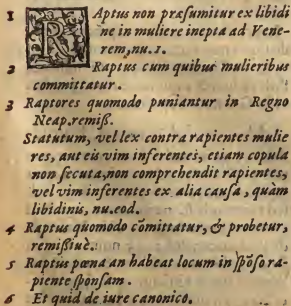 1 RAptus non præsumitur ex libidi
ne in muliere inepta ad Vene-
rem, nu. 1.
2 Raptus cum quibus mulieribus
committatur.
3 Raptores quomodo puniantur in Regno
Neap. remiß.
Statutum, vel lex contra rapientes mulie
res, aut eis vim inferentes, etiam copula
non secuta, non comprehendit rapientes,
vel vim inferentes ex alia causa, quàm
libidinis, nu. eod.
4 Raptus quomodo cõmittatur, & probetur,
remißiuè.
5 Raptus pœna an habeat locum in spõso ra-
piente sponsam.
6 Et quid de iure canonico.